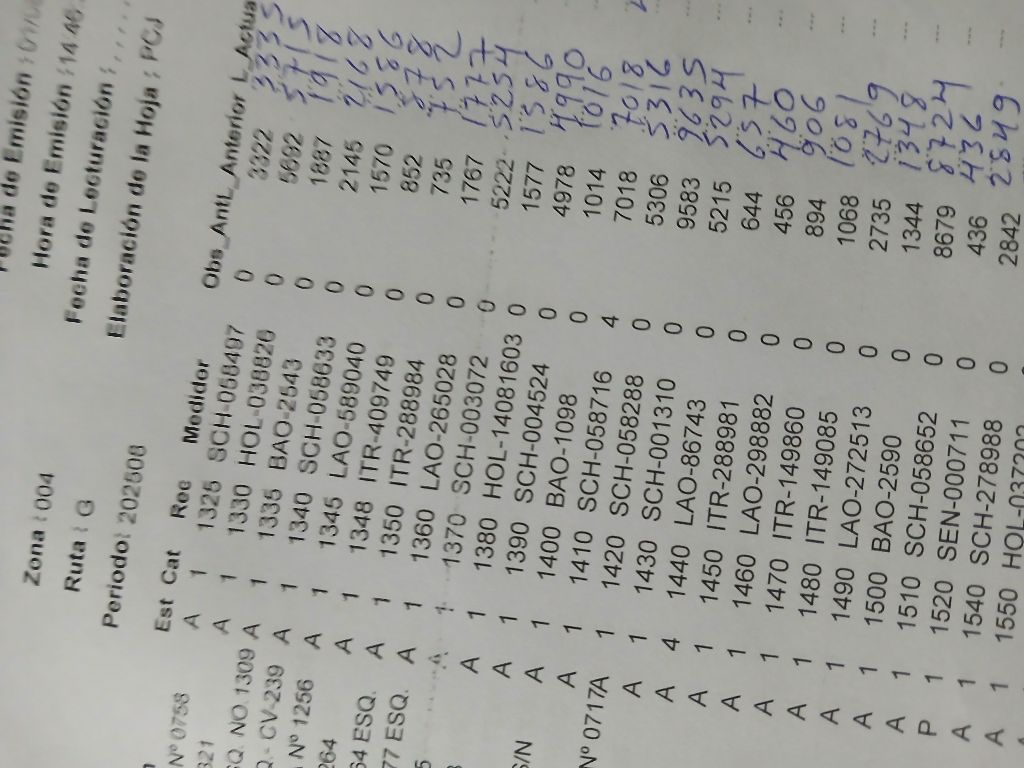 Fecha de Emisión :
Zona : 004 Hora de Emisión : 14:46
Ruta : G Fecha de Lecturación :
Periodo: 202508 Elaboración de la Hoja : PCJ
Est Cat Rec Medidor Obs_Ant L_Anterior L_Actua
Nº 0758 A 1 1325 SCH-058497 0 3322 3335
321 A 1 1330 HOL-038826 0 5692 5715
Q. NO. 1309 A 1 1335 BAO-2543 0 1887 1918
Q.- CV-239 A 1 1340 SCH-058633 0 2145 2168
Nº 1256 A 1 1345 LAO-589040 0 1570 1586
264 A 1 1348 ITR-409749 0 852 878
64 ESQ. A 1 1350 ITR-288984 0 735 752
77 ESQ. A 1 1360 LAO-265028 0 1767 1777
5 A 1 1370 SCH-003072 0 5222 5254
A 1 1380 HOL-14081603 0 1577 1586
A 1 1390 SCH-004524 0 4978 4990
S/N A 1 1400 BAO-1098 0 1014 1016
A 1 1410 SCH-058716 4 7018 7018
Nº 0717A A 1 1420 SCH-058288 0 5306 5316
A 1 1430 SCH-001310 0 9583 9635
A 4 1440 LAO-86743 0 5215 5294
A 1 1450 ITR-288981 0 644 657
A 1 1460 LAO-298882 0 456 460
A 1 1470 ITR-149860 0 894 906
A 1 1480 ITR-149085 0 1068 1081
A 1 1490 LAO-272513 0 2735 2769
A 1 1500 BAO-2590 0 1344 1348
A 1 1510 SCH-058652 0 8679 8724
P 1 1520 SEN-000711 0 436 436
A 1 1540 SCH-278988 0 2842 2849
A 1 1550